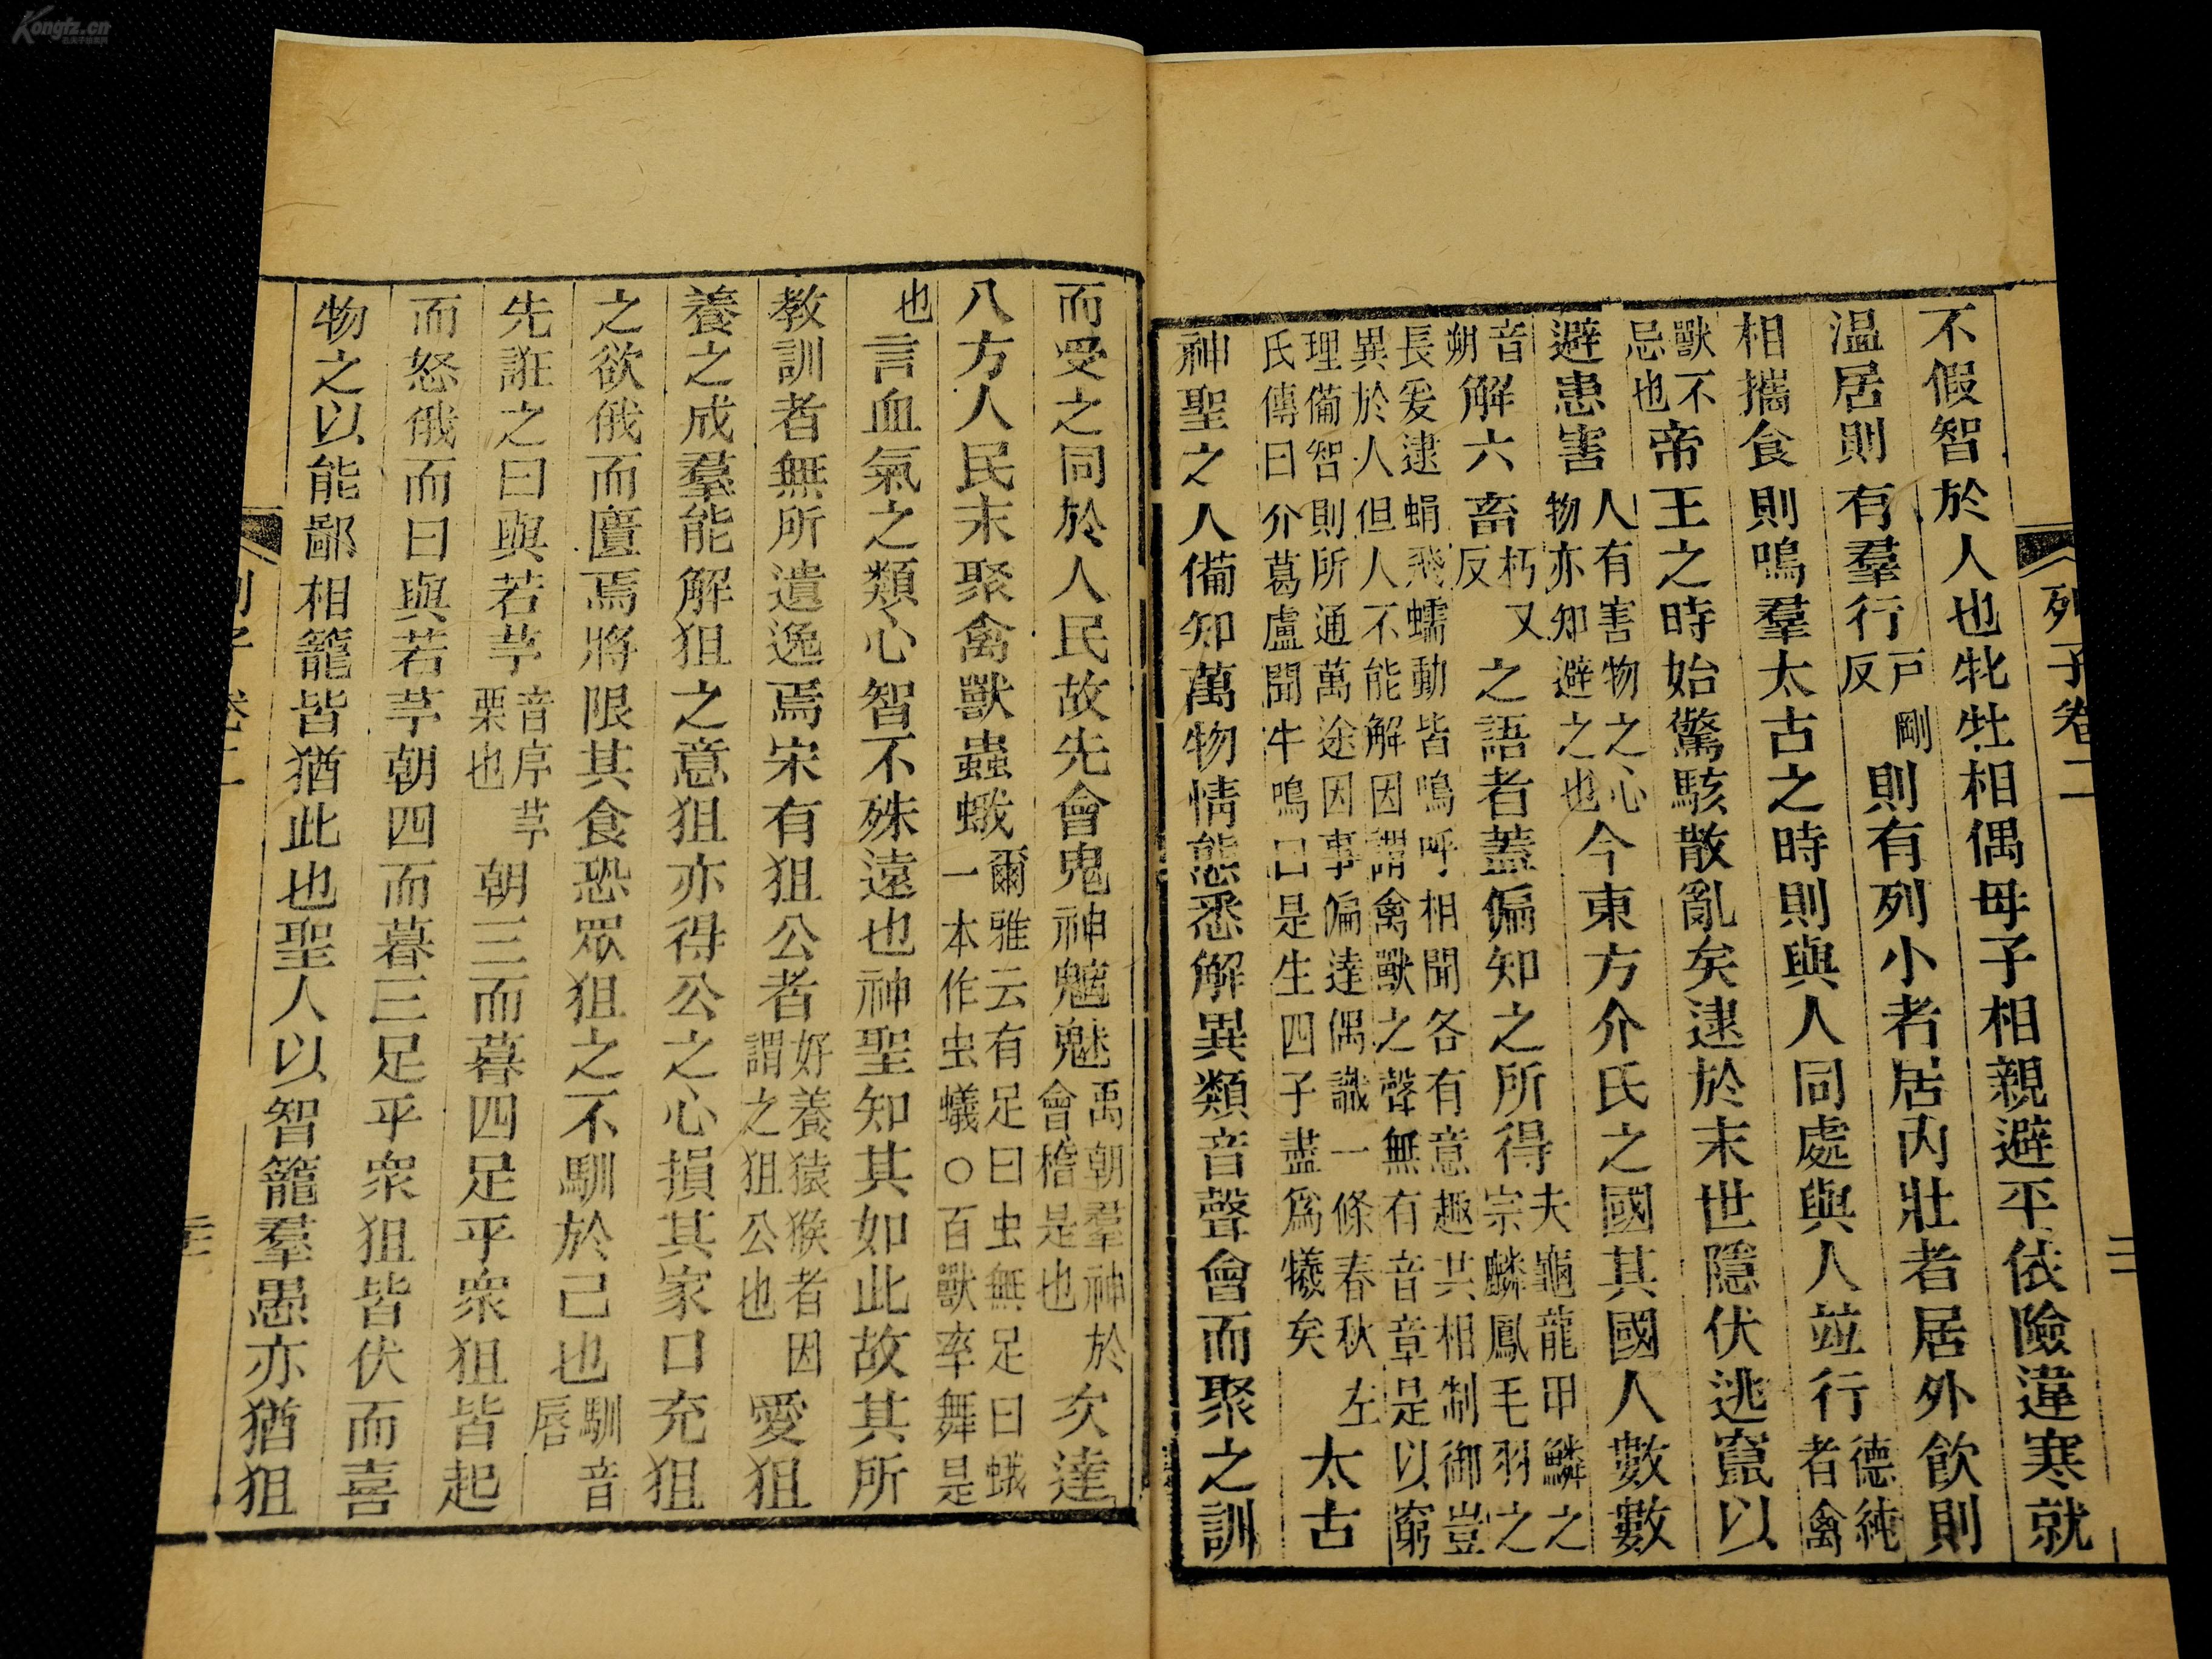 列子卷二
不假智於人也牝牡相偶母子相親避平依險違寒就
溫居則有羣行戶剛反則有列小者居內壯者居外飲則
相攜食則鳴羣太古之時則與人同處與人並行德純者禽
獸不忌也帝王之時始驚駭散亂矣逮於末世隱伏逃竄以
避患害人有害物之心物亦知避之也今東方介氏之國其國人數數
音朔解六畜朽又反之語者蓋偏知之所得夫龜龍甲鱗之宗麟鳳毛羽之
長爰逮蜎飛蠕動皆鳴呼相聞各有意趣共相制御豈異於人但人不能解因謂禽獸之聲無有音章是以窮
理備智則所通萬途因事偏達偶識一條春秋左氏傳曰介葛盧聞牛鳴曰是生四子盡爲犧矣太古
神聖之人備知萬物情態悉解異類音聲會而聚之訓
而受之同於人民故先會鬼神魑魅禹朝羣神於會稽是也次達
八方人民末聚禽獸蟲蛾爾雅云有足曰虫無足曰蛾一本作虫蟻○百獸率舞是
也言血氣之類心智不殊遠也神聖知其如此故其所
教訓者無所遺逸焉宋有狙公者好養猿猴者因謂之狙公也愛狙
養之成羣能解狙之意狙亦得公之心損其家口充狙
之欲俄而匱焉將限其食恐眾狙之不馴於己也馴音唇
先誑之曰與若芧音序芧栗也朝三而暮四足乎衆狙皆起
而怒俄而曰與若芧朝四而暮三足乎衆狙皆伏而喜
物之以能鄙相籠皆猶此也聖人以智籠羣愚亦猶狙
列子卷二
Kongfz.cn